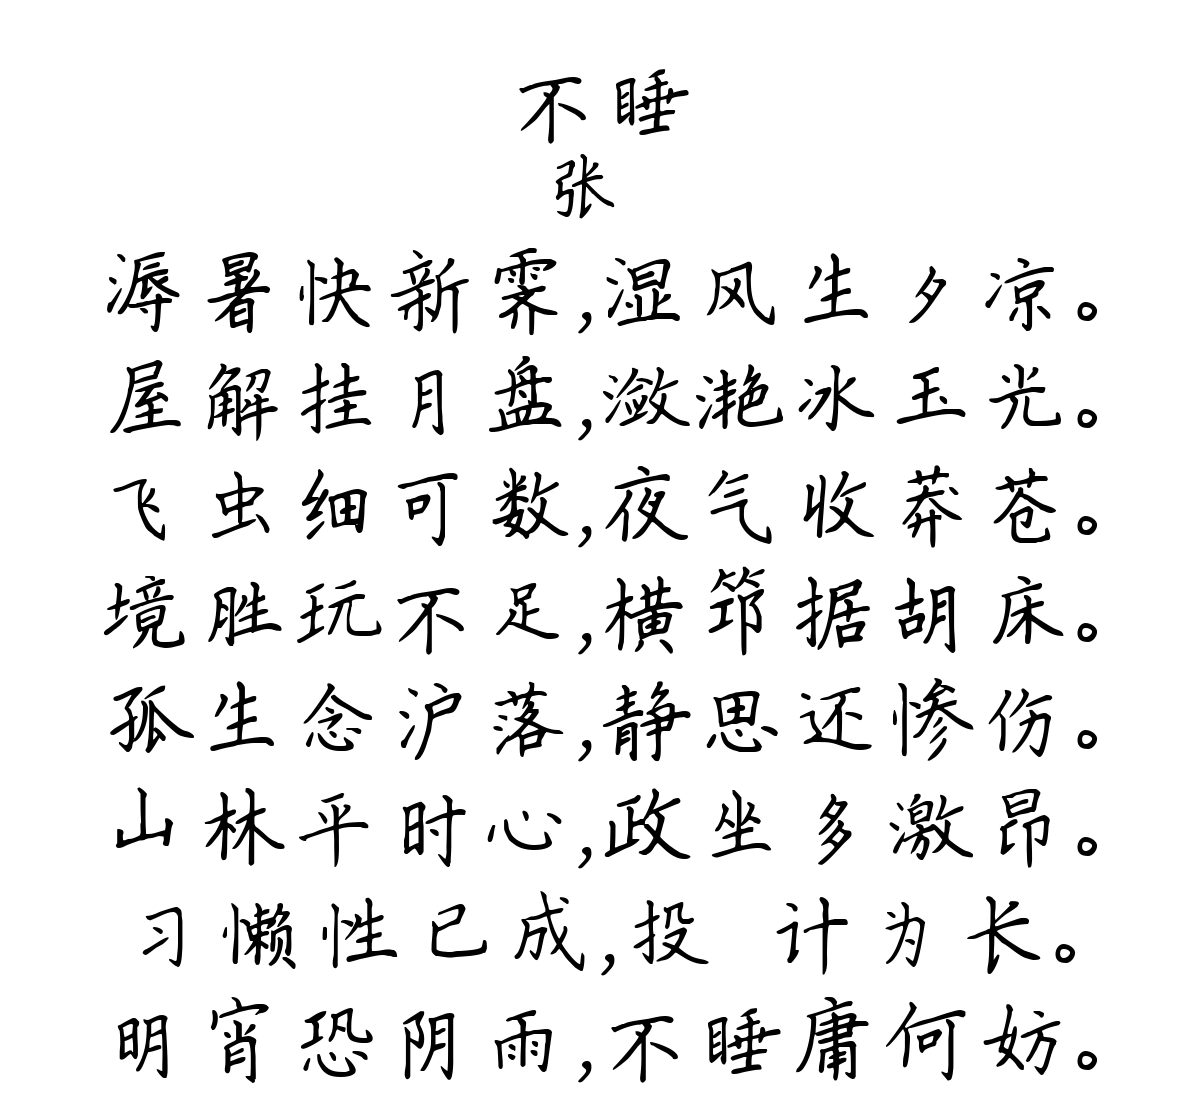 不睡
张
溽暑快新霁,湿风生夕凉。
屋解挂月盘,潋滟冰玉光。
飞虫细可数,夜气收莽苍。
境胜玩不足,横筇据胡床。
孤生念沪落,静思还惨伤。
山林平时心,政坐多激昂。
习懒性已成,投 计为长。
明宵恐阴雨,不睡庸何妨。